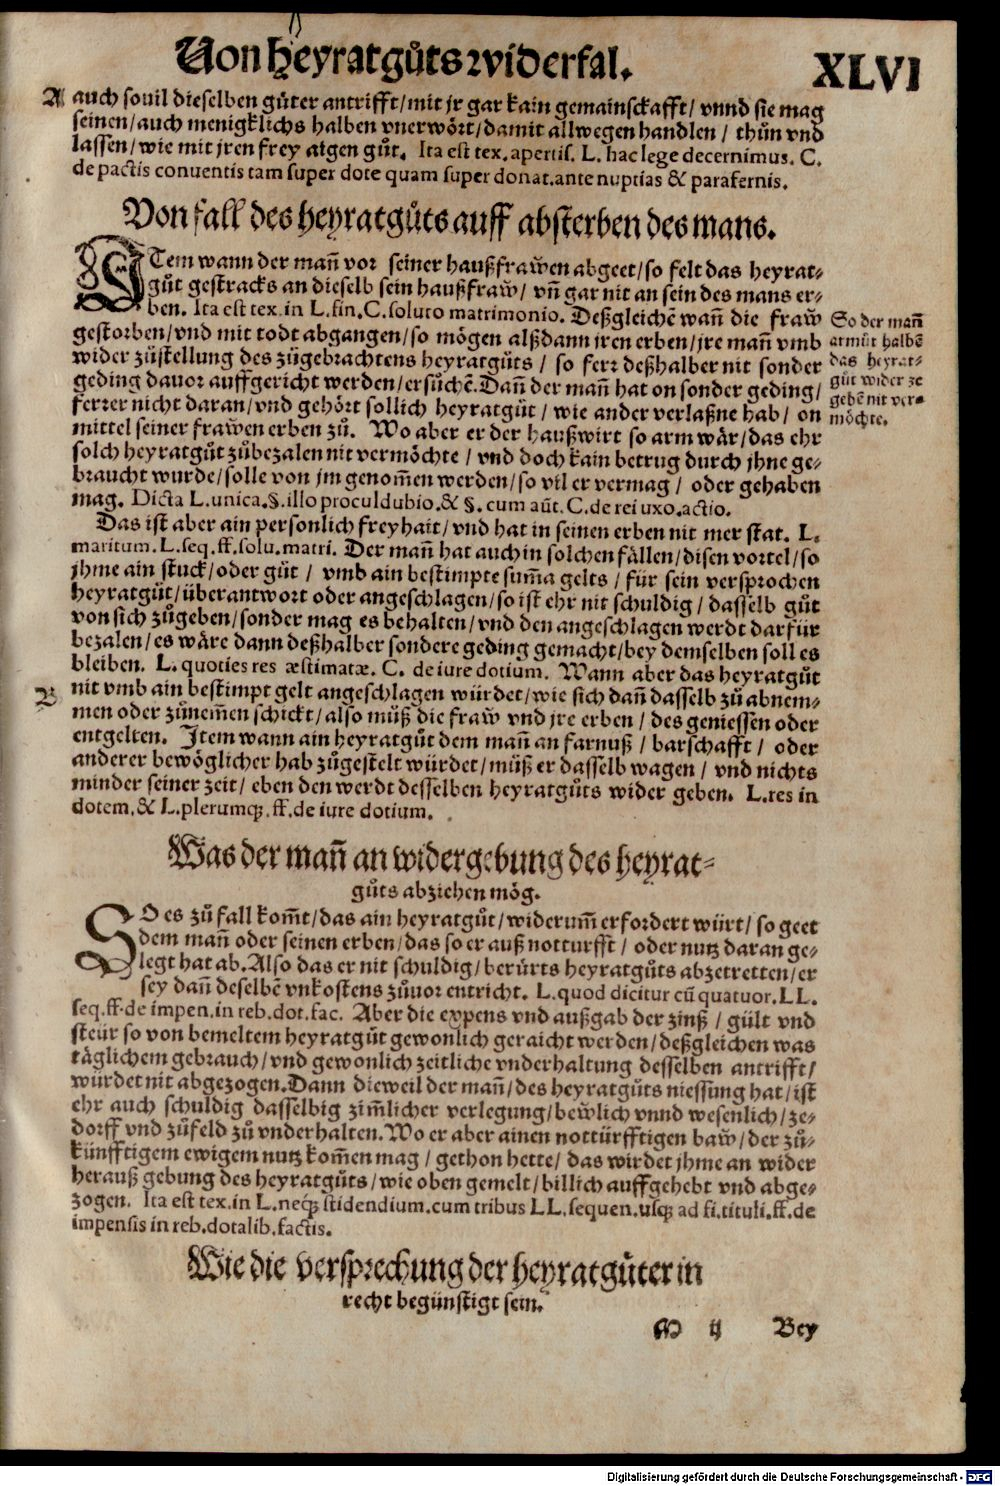 Von heyratgůts widerfal.
XLVI
A auch souil dieselben gůter antrifft/mit jr gar kain gemainsckafft/ vnnd sie mag
seinen/auch menigklichs halben vnerwört/damit allwegen handlen / thůn vnd
lassen/wie mit jren frey aigen gůt. Ita est tex. apertis. L. hac lege decernimus. C.
de pactis conuentis tam super dote quam super donat.ante nuptias & parafernis.
Von fall des heyratgůts auff absterben des mans.
ITem wann der mañ vor seiner haußfrawen abgeet/so felt das heyrat-
gůt gestracks an dieselb sein haußfraw/ vñ gar nit an sein des mans er-
ben. Ita est tex.in L.fin.C.soluto matrimonio. Deßgleichē wañ die fraw
gestorben/vnd mit todt abgangen/so mögen alßdann jren erben/jre mañ vmb
wider zůstellung des zůgebrachtens heyratgůts / so ferr deßhalber nit sonder
geding dauor auffgericht werden/ersůchē. Dañ der mañ hat on sonder geding/
ferrer nicht daran/vnd gehört sollich heyratgůt / wie ander verlaßne hab / on
mittel seiner frawen erben zů. Wo aber er der haußwirt so arm wär/das ehr
solch heyratgůt zůbezalen nit vermöchte / vnd doch kain betrug durch jhne ge-
braucht wurde/solle von jm genom̃en werden/so vil er vermag / oder gehaben
mag. Dicta L.unica.§.illo proculdubio.& §. cum aūt. C.de rei uxo.actio.
So der mañ
armůt halbē
das heyrat-
gůt wider ze
gebē nit ver-
möchte.
Das ist aber ain personlich freyhait/vnd hat in seinen erben nit mer stat. L.
maritum. L.seq.ff.solu.matri. Der mañ hat auch in solchen fällen/disen vortel/so
jhme ain stuck/oder gůt / vmb ain bestimpte sum̃a gelts / für sein versprochen
heyratgůt/überantwort oder angeschlagen/so ist ehr nit schuldig / dasselb gůt
von sich zůgeben/sonder mag es behalten/vnd den angeschlagen werdt darfür
bezalen/es wäre dann deßhalber sondere geding gemacht/bey demselben soll es
bleiben. L. quoties res æstimatæ. C. de iure dotium. Wann aber das heyratgůt
B nit vmb ain bestimpt gelt angeschlagen würdet/wie sich dañ dasselb zů abnem-
men oder zůnem̃en schickt/also můß die fraw vnd jre erben / des geniessen oder
entgelten. Item wann ain heyratgůt dem mañ an farnuß / barschafft / oder
anderer bewöglicher hab zůgestelt würdet/můß er dasselb wagen / vnd nichts
minder seiner zeit/ eben den werdt desselben heyratgůts wider geben. L.res in
dotem.& L.plerumq;.ff.de iure dotium.
Was der mañ an widergebung des heyrat-
gůts abziehen mög.
SO es zů fall kom̃t/das ain heyratgůt/widerum̃ erfordert würt/so geet
dem mañ oder seinen erben/das so er auß notturfft / oder nutz daran ge-
legt hat ab. Also das er nit schuldig/berürts heyratgůts abzetretten/er
sey dañ deselbē vnkostens zůuor entricht. L.quod dicitur cū quatuor.LL.
seq.ff.de impen.in reb.dot.fac. Aber die expens vnd außgab der zinß / gült vnd
steür so von bemeltem heyratgůt gewonlich geraicht werden/deßgleichen was
täglichem gebrauch/vnd gewonlich zeitliche vnderhaltung desselben antrifft/
würdet nit abgezogen. Dann dieweil der mañ/des heyratgůts niessung hat/ist
ehr auch schuldig dasselbig zim̃licher verlegung/bewlich vnnd wesenlich/ze-
dorff vnd zůfeld zů vnderhalten. Wo er aber ainen nottürfftigen baw/der zů-
künfftigem ewigem nutz kom̃en mag / gethon hette/ das wirdet jhme an wider
herauß gebung des heyratgůts/wie oben gemelt/billich auffgehebt vnd abge-
zogen. Ita est tex.in L.neq; stidendium.cum tribus LL.sequen.usq; ad fi.tituli.ff.de
impensis in reb.dotalib.factis.
Wie die versprechung der heyratgůter in
recht begünstigt sein.
M ij Bey
Digitalisierung gefördert durch die Deutsche Forschungsgemeinschaft - DFG